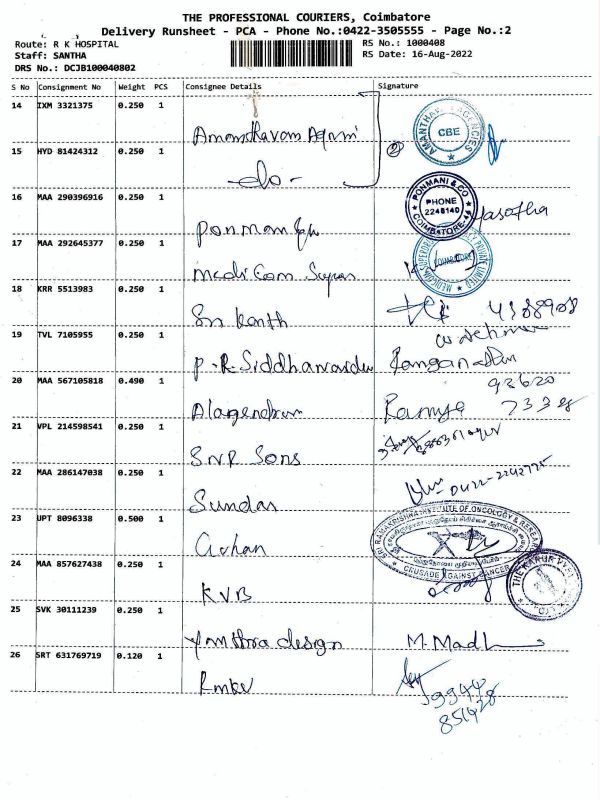 THE PROFESSIONAL COURIERS, Coimbatore
Delivery Runsheet - PCA - Phone No.:0422-3505555 - Page No.:2
Route: R K HOSPITAL RS No.: 1000408
Staff: SANTHA RS Date: 16-Aug-2022
DRS No.: DCJB100040802
S No Consignment No Weight PCS Consignee Details Signature
14 IXM 3321375 0.250 1
AMANTHAVAM AGENCIES CBE
15 HYD 81424312 0.250 1
-do-
16 MAA 290396916 0.250 1
PONMANI & CO PHONE 2246140 COIMBATORE
17 MAA 292645377 0.250 1
COIMBATORE
18 KRR 5513983 0.250 1
Sri Kanth
19 TVL 7105955 0.250 1
P.R. Siddhavardu
20 MAA 567105818 0.490 1
Ramya 93620
733
21 VPL 214598541 0.250 1
SNR Sons
22 MAA 286147038 0.250 1
Sundar 0422-2242725
23 UPT 8096338 0.500 1
SRI RAMAKRISHNA INSTITUTE OF ONCOLOGY & RESEARCH
CRUSADE AGAINST CANCER
24 MAA 857627438 0.250 1
KVB THE KARUR VYSYA
25 SVK 30111239 0.250 1
design M. Madh
26 SRT 631769719 0.120 1
Rmkv 99440
851428